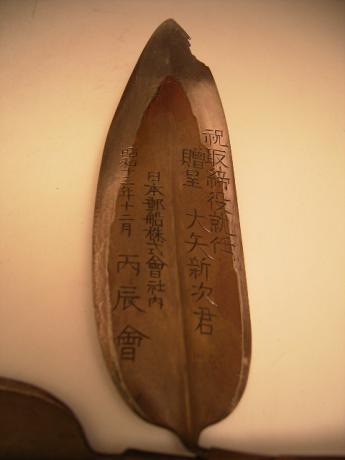 祝取締役就任
贈呈 大矢新次君
日本郵船株式會社内
昭和十二年十二月 丙辰會